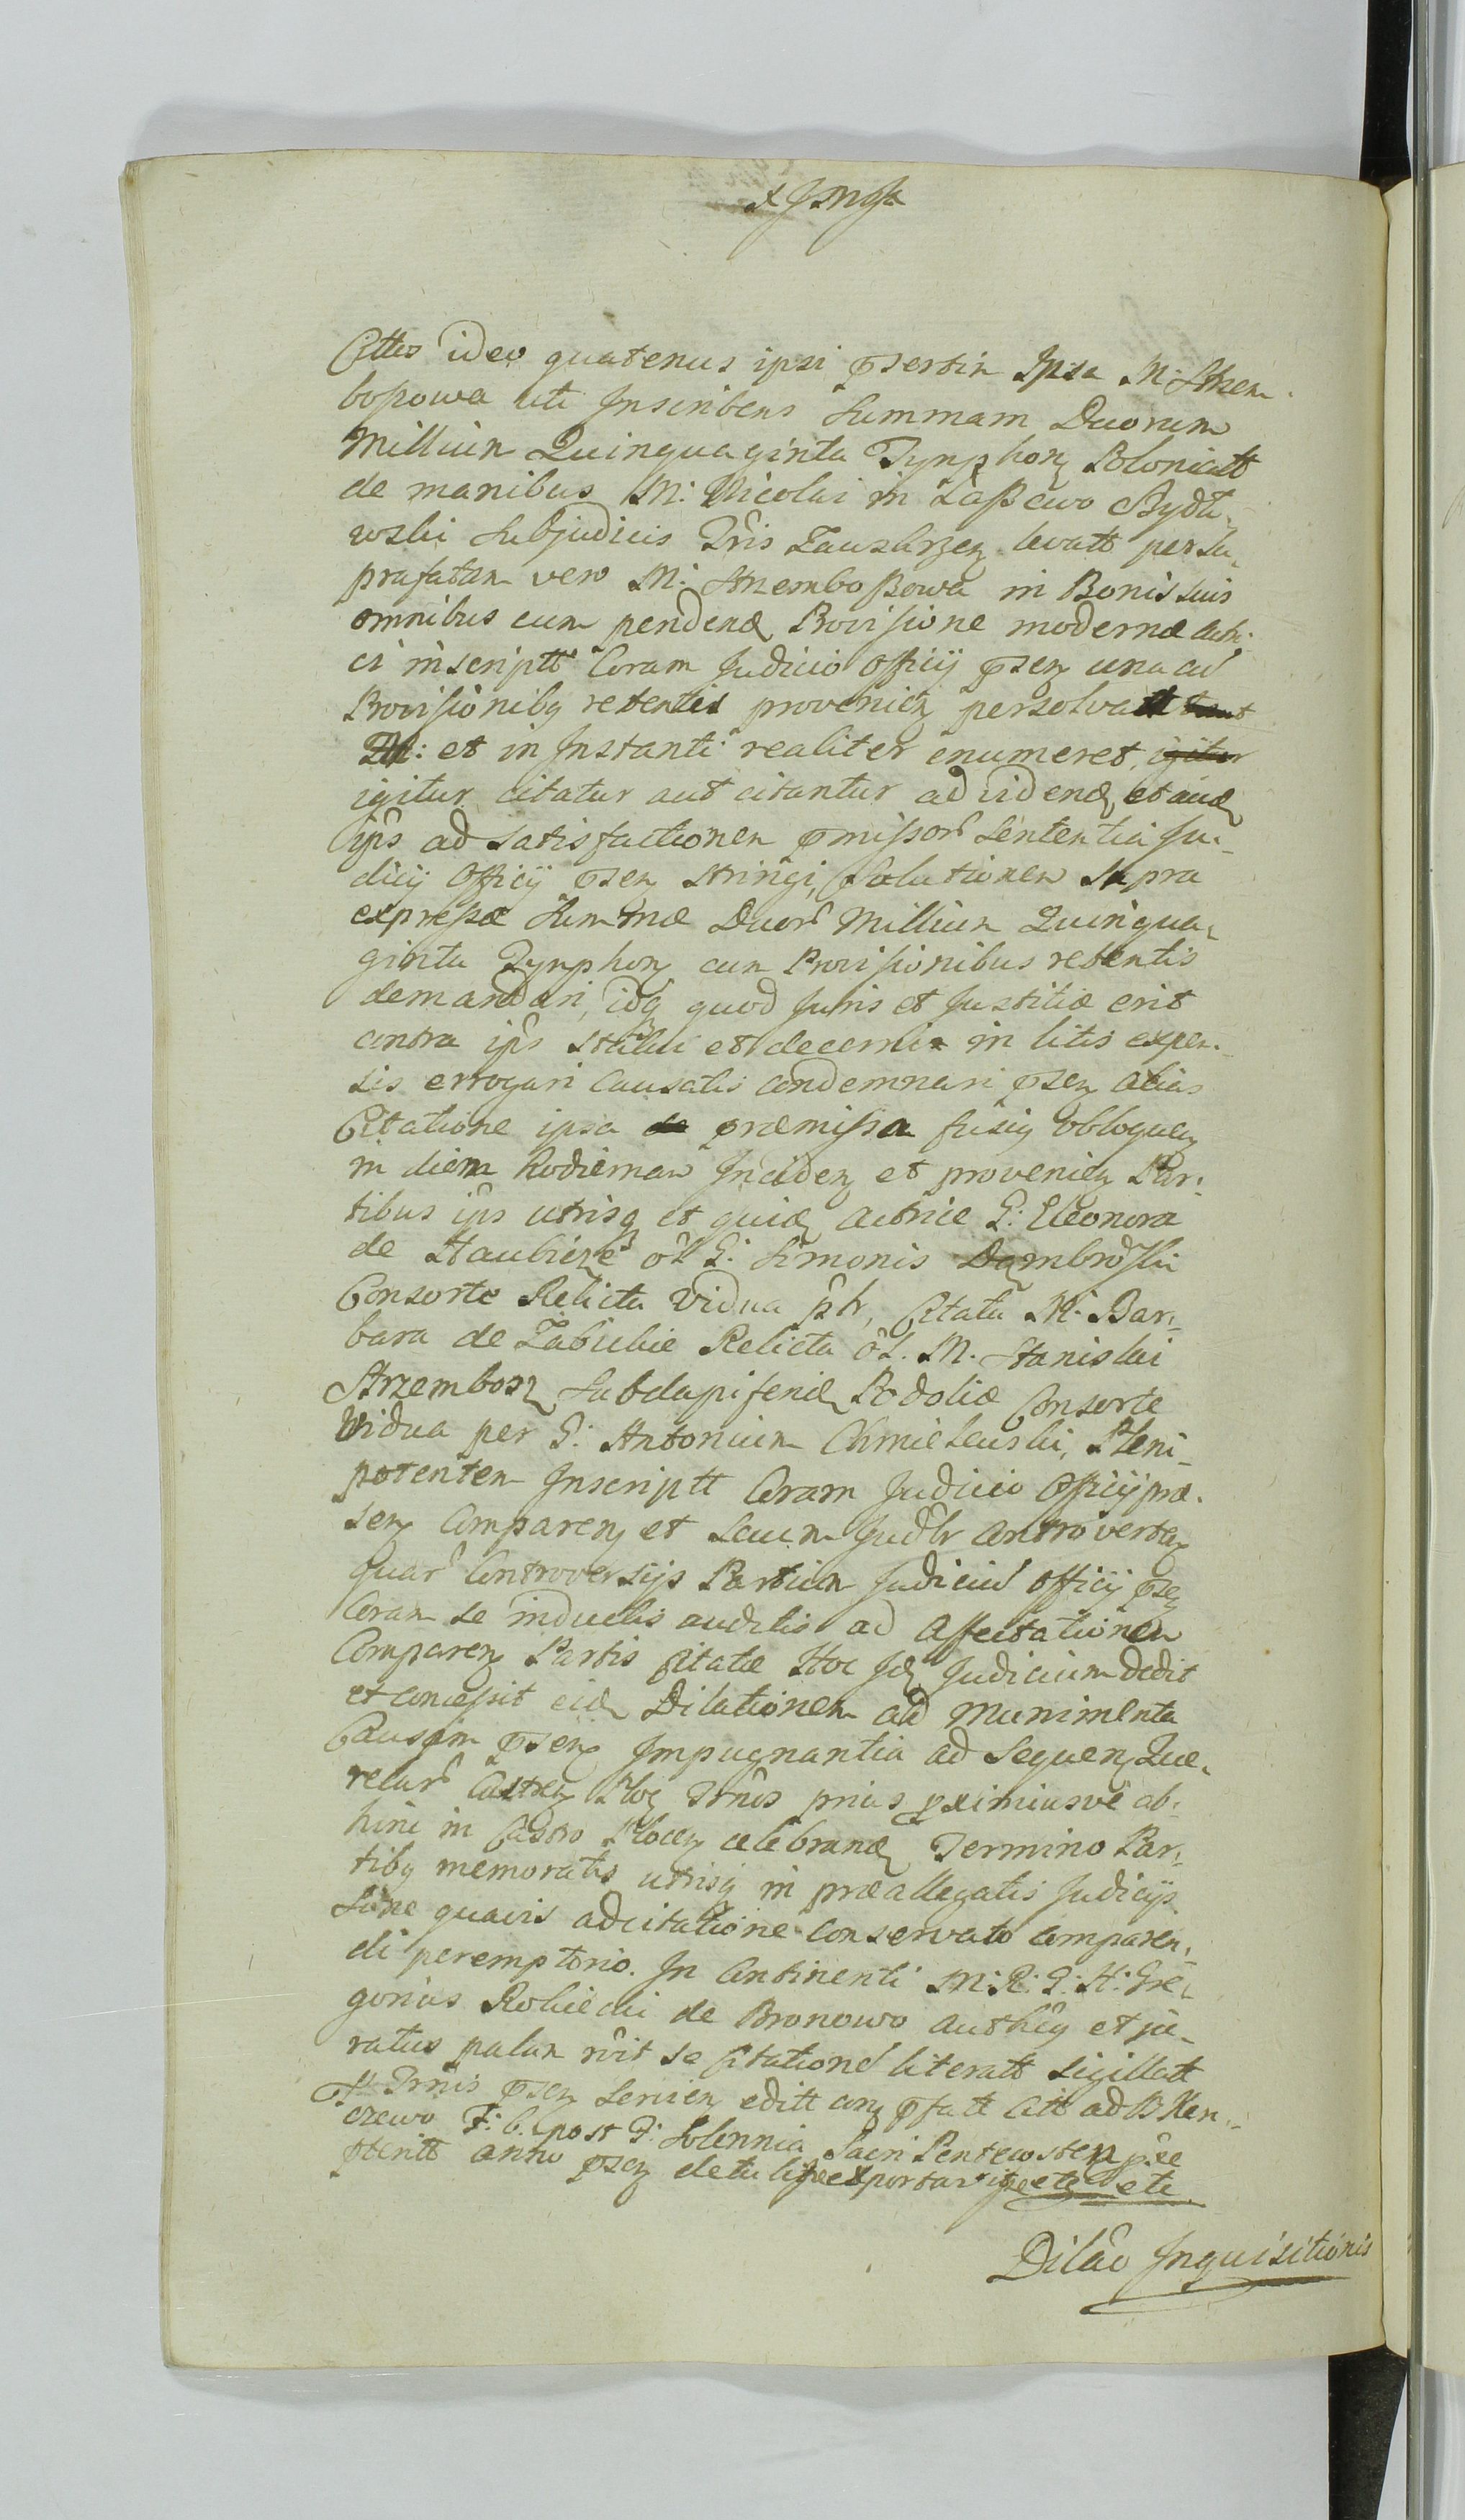 Cittus ideo quatenus ipsi psertin Ipsa M: Strzem
boszowa uti Inscribens Summam Duorum
Millium Quinquaginta Tynphorz Poloniatt
de manibus M: Nicolai in Laßewo Bydł
wski Subjudicis Tris Zawskrzen levatt per su
prafatam vero M: Strzemboßowa in Bonis suis
omnibus cum pendend Provisione modernæ Actri
ci inscriptt Coram Judicio Officij psen una cu
Provisionibq retentis provenien persolvatt
M: et in Instanti realiter enumeret, igitur
igitur citatur aut citantur ad videnđ et auđ
ips ad satisfactionem pmissor Sententia Ju
dicij Officij psen stringi, Solutionem supra
expressæ Summæ Duor Millium Quinqua
ginta Tynphorz cum Provisionibus retentis
demandari, idq quod Juris et Justitiæ erit
contra ips statui et decerni in litis expen
sis errogari causatis condemnari psen alias
Citatione ipsa præmissa fusiq obloquen
in diem hodiernam Inciden et provenien Par
tibus ips utrisq et quid Actrice G: Eleonora
de ol G: Simonis Dąmbroski
Consorte Relicta Vidua ph, Citata M: Bar
bara de Zabickie Relicta ol. M. Stanislai
Strzembosz Subdapiferid Podoliæ Consorte
Vidua per G: Antonium Chmielewski, Pleni
potenten Inscriptt Coram Judicio Officij præ
sen Comparen et secum Judlr controverten
quar Controversijs Partium Judiciu Officij psen
Coram se inductis auditis ad Affectationem
Comparen Partis Citatæ Hoc Id Judicium dedit
et concessit eid Dilationem ad Munimenta
Causam psen Impugnantia ad Sequen Que
relar Castren Ploc Trnis prius pximiusve ab
hinc in Castro Plocen celebrand Termino Par
tibq memoratis utrisq in præallegatis Judicijs
Sine quavis adcitatione conservato comparen
di peremptorio. In Continenti M: R: G: H: Gre
gorius Rokicki de Bronowo authen et ju
ratus palam rvit se Citatione literatt sigillatt
Trnis psen servien editt con pfatt Citt ad B Ken
czewo F: 6. post F: Solennia Sacri Pentecosten pxe
pteritt anno psen detulisse et portavisse etc etc

Dilao Inquisitionis